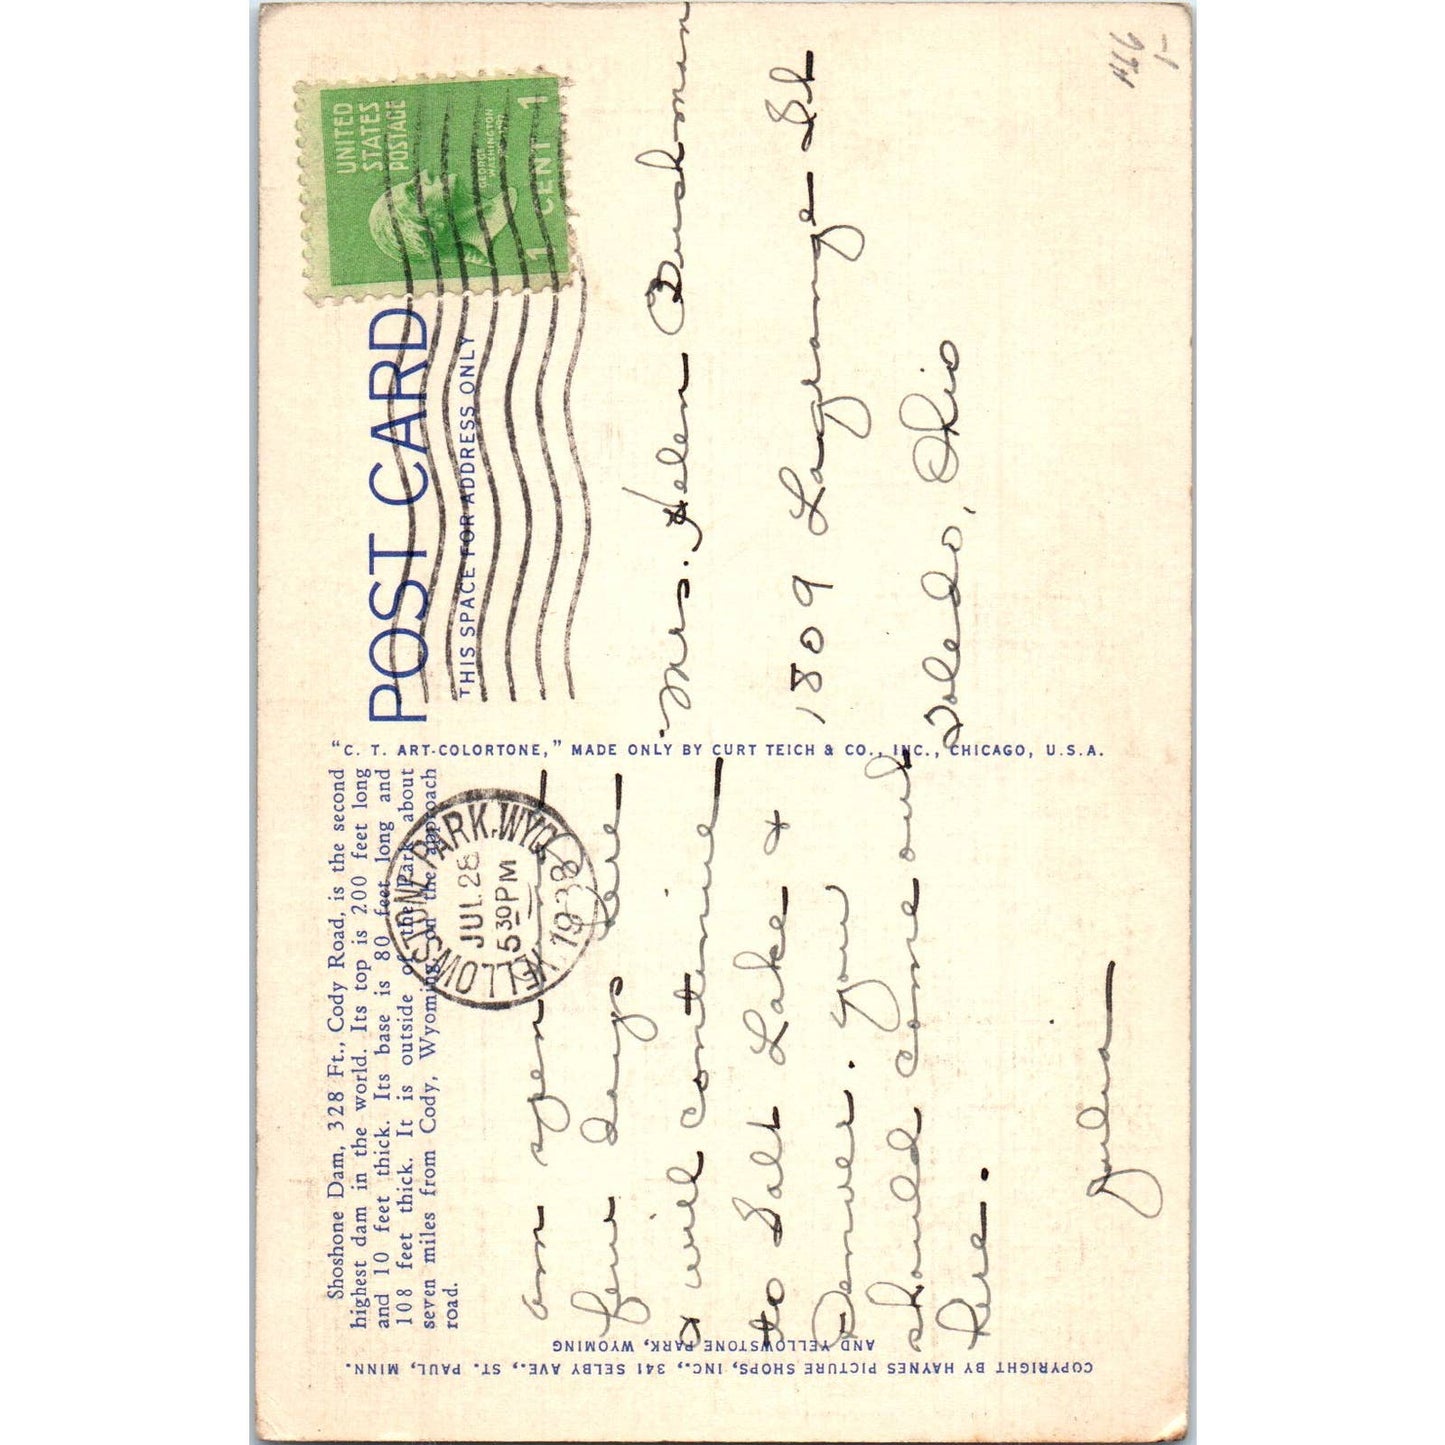 Shoshone Dam, 328 Ft., Cody Road, is the second
highest dam in the world. Its top is 200 feet long
and 10 feet thick. Its base is 80 feet long and
108 feet thick. It is outside of the Park about
seven miles from Cody, Wyoming, on the approach
road.
YELLOWSTONE PARK, WYO.
JUL 28
5 30 PM
1938
am spending a
few days here
& will continue
to Salt Lake &
Denver. You
should come out
here.
Julia
COPYRIGHT BY HAYNES PICTURE SHOPS, INC., 341 SELBY AVE., ST. PAUL, MINN.
AND YELLOWSTONE PARK, WYOMING
"C. T. ART-COLORTONE," MADE ONLY BY CURT TEICH & CO., INC., CHICAGO, U.S.A.
POST CARD
THIS SPACE FOR ADDRESS ONLY
UNITED
STATES
POSTAGE
GEORGE
WASHINGTON
1 CENT 1
Mrs. Helen Bushman
1809 Lagrange St
Toledo, Ohio